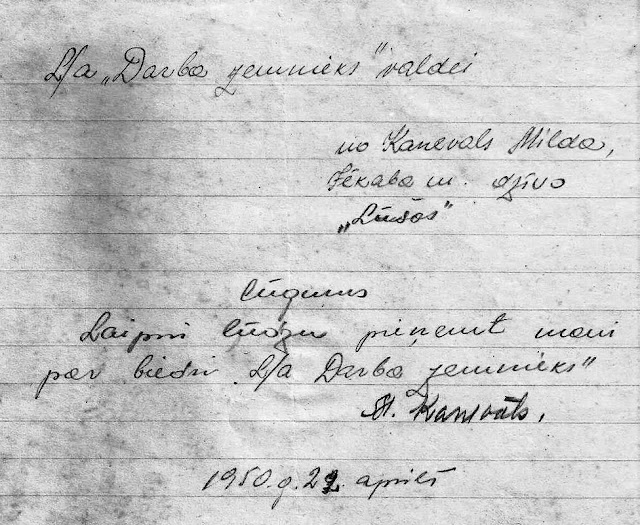 L/a „Darba zemnieks" valdei
no Kanevals Milda,
Jēkaba m. dzīvo
„Lūšos"
lūgums
Laipni lūdzu pieņemt mani
par biedri L/a Darba zemnieks"
M. Kanevals.
1950.g. 22. aprīlī